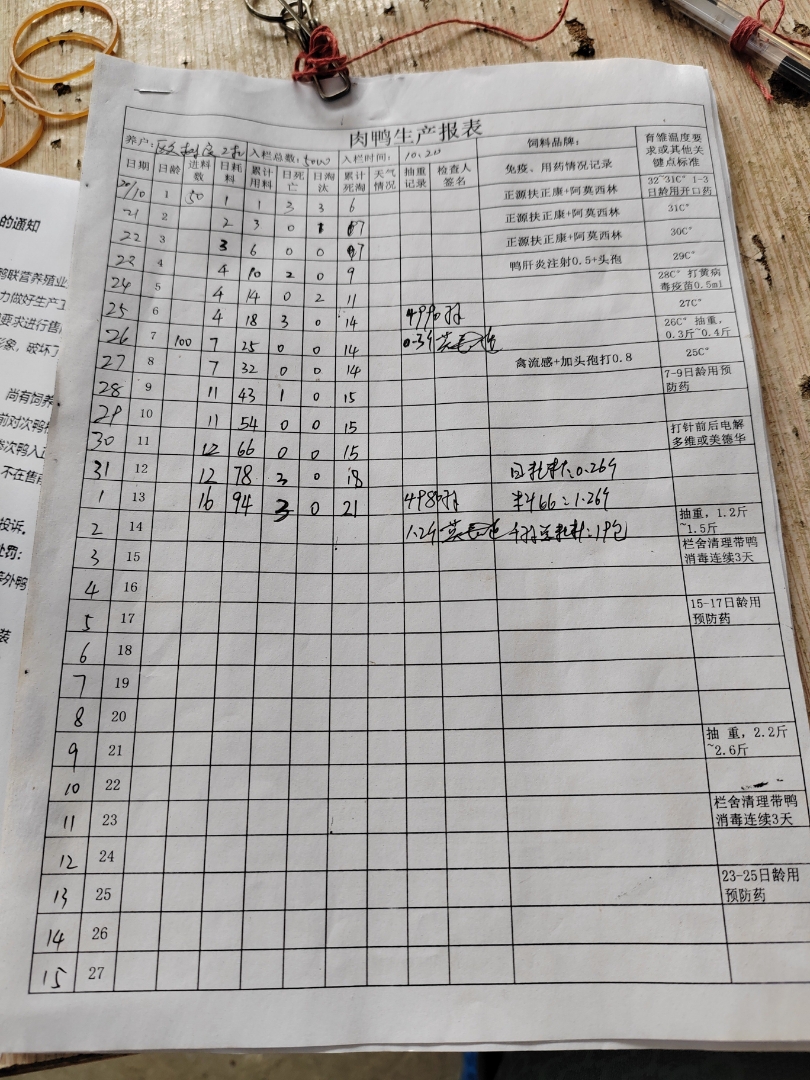 的通知
鸭联营养殖业
力做好生产工
要求进行售
形象，破坏了
尚有饲养
前对次鸭
次鸭入正
不在售前
投诉。
处罚：
肉鸭生产报表
养户： 入栏总数：5000 入栏时间：10.20 饲料品牌： 育雏温度要求或其他关键点标准
日期 日龄 进料数 日耗料 累计用料 日死亡 日淘汰 累计死淘 天气情况 抽重记录 检查人签名 免疫、用药情况记录
20/10 1 50 1 1 3 3 6 正源扶正康+阿莫西林 32~31C° 1-3日龄用开口药
21 2 2 3 0 1 7 正源扶正康+阿莫西林 31C°
22 3 3 6 0 0 7 正源扶正康+阿莫西林 30C°
23 4 4 10 2 0 9 鸭肝炎注射0.5+头孢 29C°
24 5 4 14 0 2 11 28C° 打黄病毒疫苗0.5ml
25 6 4 18 3 0 14 4990羽 27C°
26 7 100 7 25 0 0 14 0.39 26C° 抽重，0.3斤~0.4斤
27 8 7 32 0 0 14 禽流感+加头孢打0.8 25C°
28 9 11 43 1 0 15 7-9日龄用预防药
29 10 11 54 0 0 15
30 11 12 66 0 0 15 打针前后电解多维或美德华
31 12 12 78 3 0 18 日耗料：0.264
1 13 16 94 3 0 21 4980羽 料肉比：1.264
2 14 1.24 千羽总耗料：19包 抽重，1.2斤~1.5斤
3 15 栏舍清理带鸭消毒连续3天
4 16
5 17 15-17日龄用预防药
6 18
7 19
8 20
9 21 抽 重，2.2斤~2.6斤
10 22
11 23 栏舍清理带鸭消毒连续3天
12 24
13 25 23-25日龄用预防药
14 26
15 27